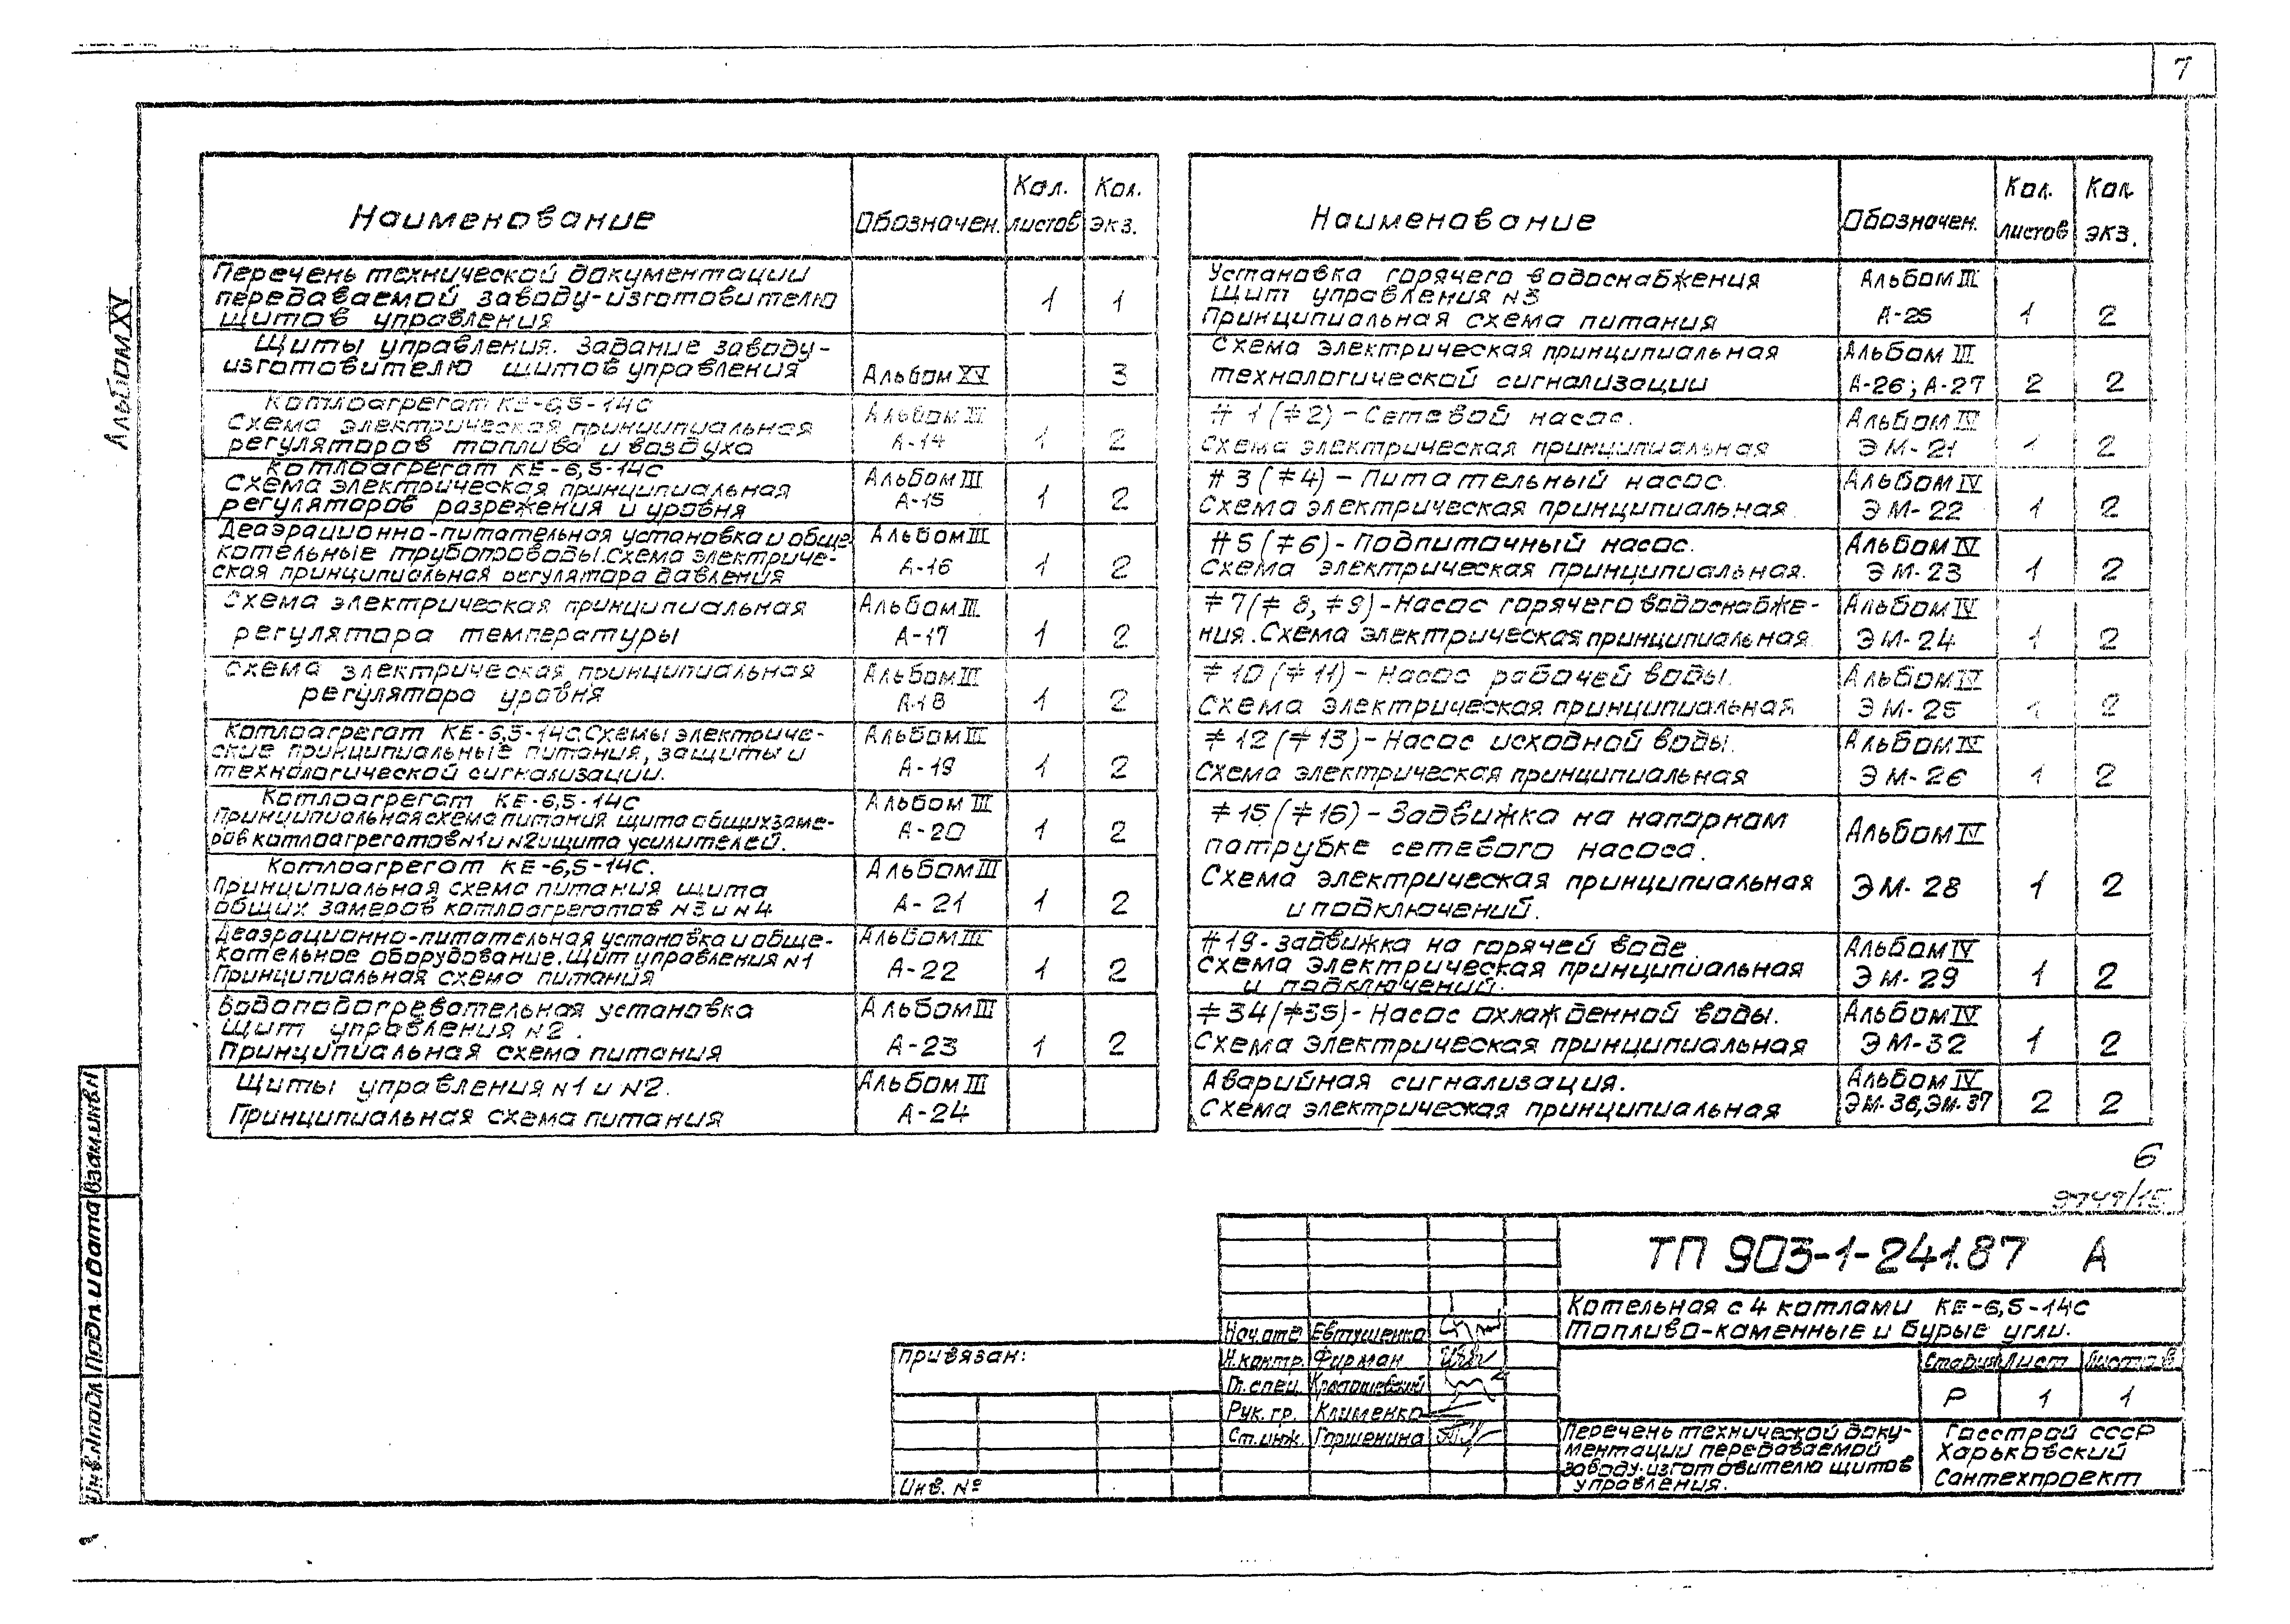 7
Альбом XV
Наименование
Обозначен.
Кол. листов
Кол. экз.
Перечень технической документации
передаваемой заводу-изготовителю
щитов управления
1
1
Щиты управления. Задание заводу-
изготовителю щитов управления
Альбом XV
3
Котлоагрегат КЕ-6,5-14С
Схема электрическая принципиальная
регуляторов топлива и воздуха
Альбом III
А-14
1
2
Котлоагрегат КЕ-6,5-14С
Схема электрическая принципиальная
регуляторов разрежения и уровня
Альбом III
А-15
1
2
Деаэрационно-питательная установка и обще
котельные трубопроводы. Схема электриче-
ская принципиальная регулятора давления
Альбом III
А-16
1
2
Схема электрическая принципиальная
регулятора температуры
Альбом III
А-17
1
2
Схема электрическая принципиальная
регулятора уровня
Альбом III
А-18
1
2
Котлоагрегат КЕ-6,5-14С. Схемы электриче-
ские принципиальные питания, защиты и
технологической сигнализации.
Альбом III
А-19
1
2
Котлоагрегат КЕ-6,5-14С
Принципиальная схема питания щита общих заме-
ров котлоагрегатов N1 и N2 и щита усилителей.
Альбом III
А-20
1
2
Котлоагрегат КЕ-6,5-14С.
Принципиальная схема питания щита
общих замеров котлоагрегатов N3 и N4
Альбом III
А-21
1
2
Деаэрационно-питательная установка и обще-
котельное оборудование. Щит управления N1
Принципиальная схема питания
Альбом III
А-22
1
2
Водоподогревательная установка
Щит управления N2.
Принципиальная схема питания
Альбом III
А-23
1
2
Щиты управления N1 и N2.
Принципиальная схема питания
Альбом III
А-24
Наименование
Обозначен.
Кол. листов
Кол. экз.
Установка горячего водоснабжения
Щит управления N3
Принципиальная схема питания
Альбом III
А-25
1
2
Схема электрическая принципиальная
технологической сигнализации
Альбом III
А-26; А-27
2
2
≠ 1 (≠2) - Сетевой насос.
Схема электрическая принципиальная
Альбом IV
ЭМ-21
1
2
≠ 3 (≠4) - Питательный насос.
Схема электрическая принципиальная.
Альбом IV
ЭМ-22
1
2
≠ 5 (≠6) - Подпиточный насос.
Схема электрическая принципиальная.
Альбом IV
ЭМ-23
1
2
≠ 7 (≠ 8, ≠9) - Насос горячего водоснабже-
ния. Схема электрическая принципиальная.
Альбом IV
ЭМ-24
1
2
≠ 10 (≠ 11) - Насос рабочей воды.
Схема электрическая принципиальная
Альбом IV
ЭМ-25
1
2
≠ 12 (≠ 13) - Насос исходной воды.
Схема электрическая принципиальная
Альбом IV
ЭМ-26
1
2
≠ 15 (≠ 16) - Задвижка на напорном
патрубке сетевого насоса.
Схема электрическая принципиальная
и подключений.
Альбом IV
ЭМ-28
1
2
≠ 19 - задвижка на горячей воде.
Схема электрическая принципиальная
и подключений.
Альбом IV
ЭМ-29
1
2
≠ 34 (≠35) - Насос охлажденной воды.
Схема электрическая принципиальная
Альбом IV
ЭМ-32
1
2
Аварийная сигнализация.
Схема электрическая принципиальная
Альбом IV
ЭМ-36, ЭМ-37
2
2
6
9749/15
ТП 903-1-241.87 А
Котельная с 4 котлами КЕ-6,5-14С
Топливо-каменные и бурые угли.
Нач.отд Евтушенко
Н.контр. Фирман
Гл.спец.
Рук. гр. Клименко
Ст.инж. Горшенина
Стадия Лист Листов
Р 1 1
Перечень технической доку-
ментации передаваемой
заводу-изготовителю щитов
управления.
Госстрой СССР
Харьковский
Сантехпроект
Привязан:
Инв. №
Взам.инв.N
Подп. и дата
Инв. N подл